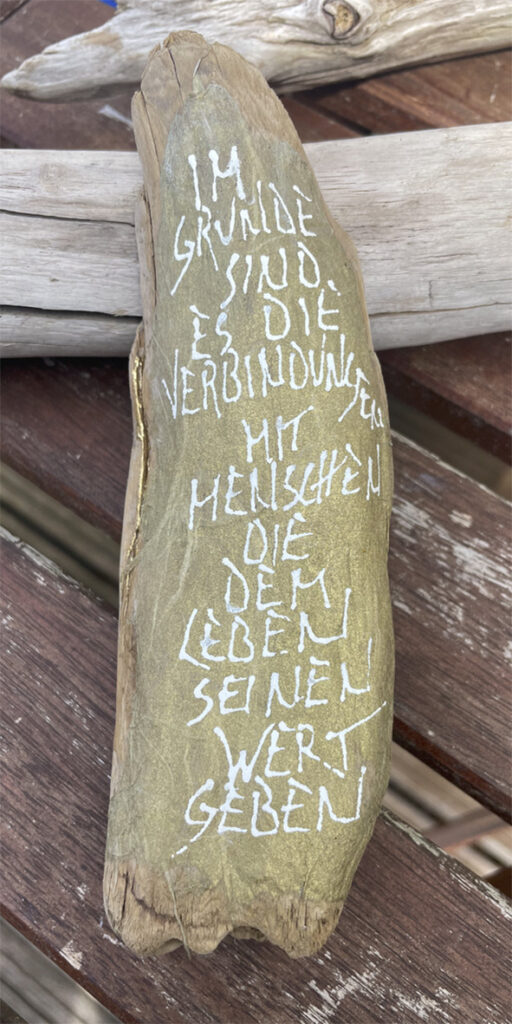 IM
GRUNDE
SIND
ES DIE
VERBINDUNGEN
MIT
MENSCHEN
DIE
DEM
LEBEN
SEINEN
WERT
GEBEN